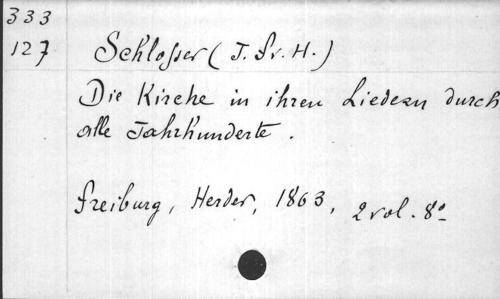 333
127
Schlosser (J. Fr. H.)
Die Kirche in ihren Liedern durch
alle Jahrhunderte.
Freiburg, Herder, 1863, 2 vol. 8º